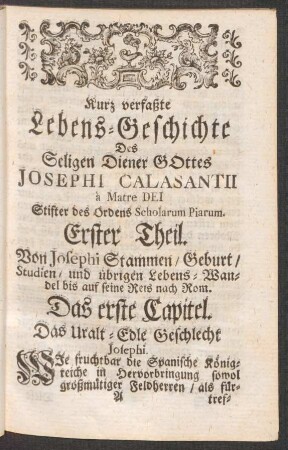 Kurz verfaßte
Lebens-Geschichte
Des
Seligen Diener GOttes
JOSEPHI CALASANTII
à Matre DEI
Stifter des Ordens Scholarum Piarum.
Erster Theil.
Von Josephi Stammen / Geburt /
Studien / und übrigen Lebens-Wan-
del bis auf seine Reis nach Rom.
Das erste Capitel.
Das Uralt-Edle Geschlecht
Josephi.
WIe fruchtbar die Spanische König-
reiche in Hervorbringung sowol
großmütiger Feldherren / als für-
A tref-